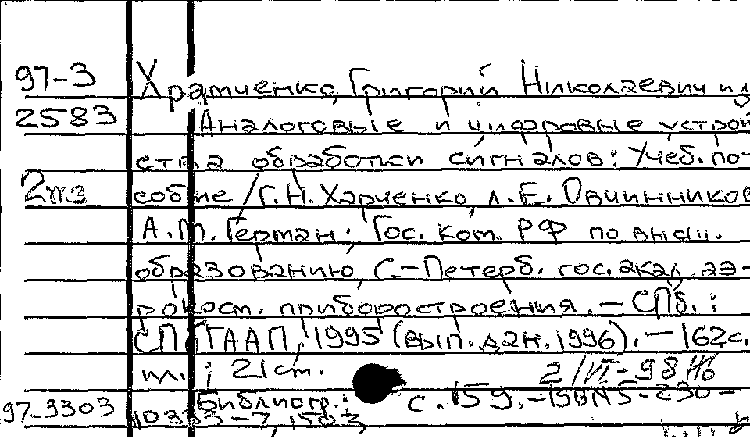 97-3 Храмченко, Григорий Николаевич и др
2583 Аналоговые и цифровые устрой-
ства обработки сигналов: Учеб. по-
2жз собие / Г.Н. Харченко, Л.Е. Овчинников
А.М. Герман; Гос. ком. РФ по высш.
образованию, С.-Петерб. гос. акад. аэ-
рокосм. приборостроения. — СПб. :
СПбГААП, 1995 (вып. дан. 1996). — 162с.
ил. ; 21см. 2/VI-98
Библиогр.: с. 159. - ISBN 5-230-
97-9303 10333-7, 150э